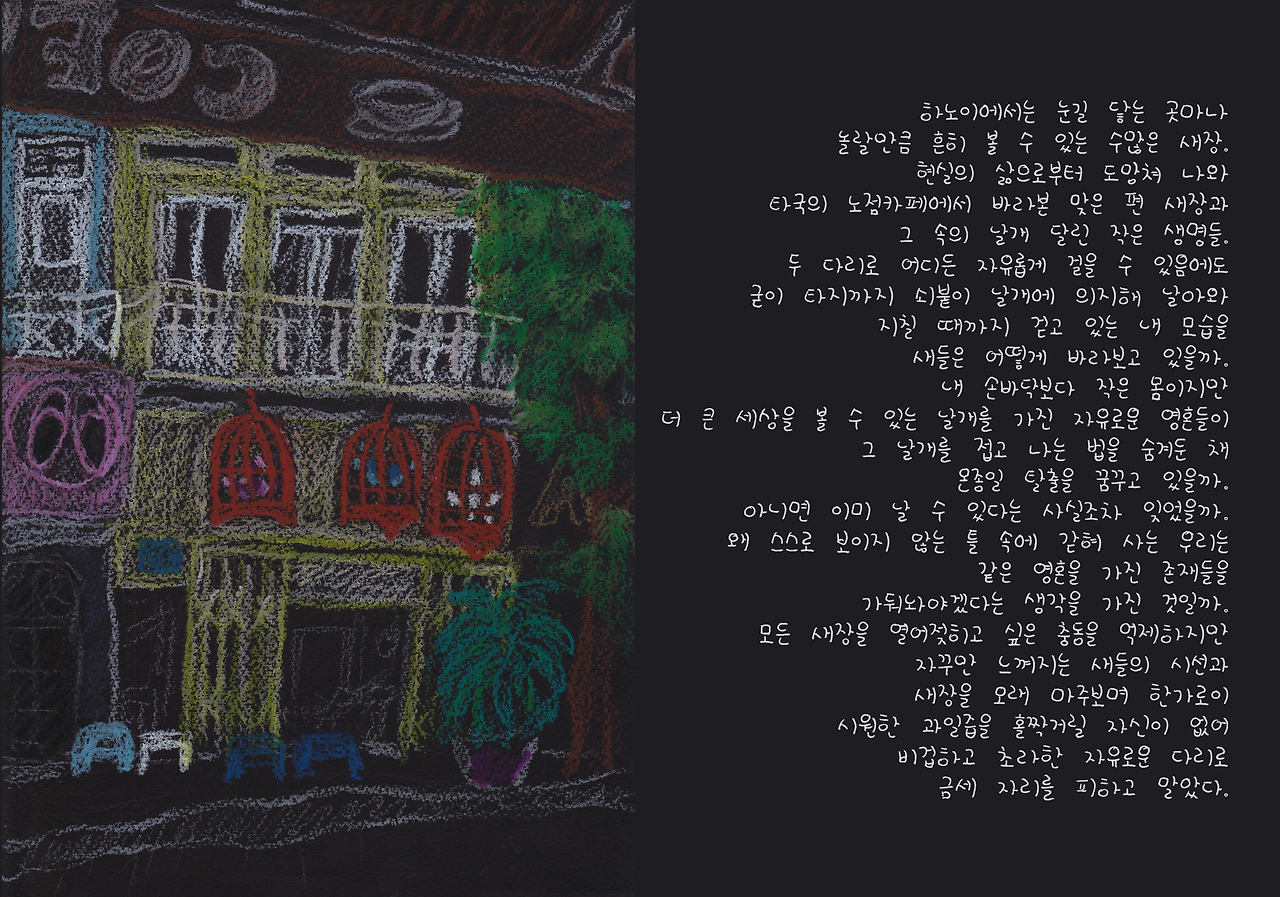 COE
하노이에서는 눈길 닿는 곳마다
놀랄만큼 흔히 볼 수 있는 수많은 새장.
현실의 삶으로부터 도망쳐 나와
타국의 노점카페에서 바라본 맞은 편 새장과
그 속의 날개 달린 작은 생명들.
두 다리로 어디든 자유롭게 걸을 수 있음에도
굳이 타지까지 쇠붙이 날개에 의지해 날아와
지칠 때까지 걷고 있는 내 모습을
새들은 어떻게 바라보고 있을까.
내 손바닥보다 작은 몸이지만
더 큰 세상을 볼 수 있는 날개를 가진 자유로운 영혼들이
그 날개를 접고 나는 법을 숨겨둔 채
온종일 탈출을 꿈꾸고 있을까.
아니면 이미 날 수 있다는 사실조차 잊었을까.
왜 스스로 보이지 않는 틀 속에 갇혀 사는 우리는
같은 영혼을 가진 존재들을
가둬놔야겠다는 생각을 가진 것일까.
모든 새장을 열어젖히고 싶은 충동을 억제하지만
자꾸만 느껴지는 새들의 시선과
새장을 오래 마주보며 한가로이
시원한 과일즙을 홀짝거릴 자신이 없어
비겁하고 초라한 자유로운 다리로
금세 자리를 피하고 말았다.